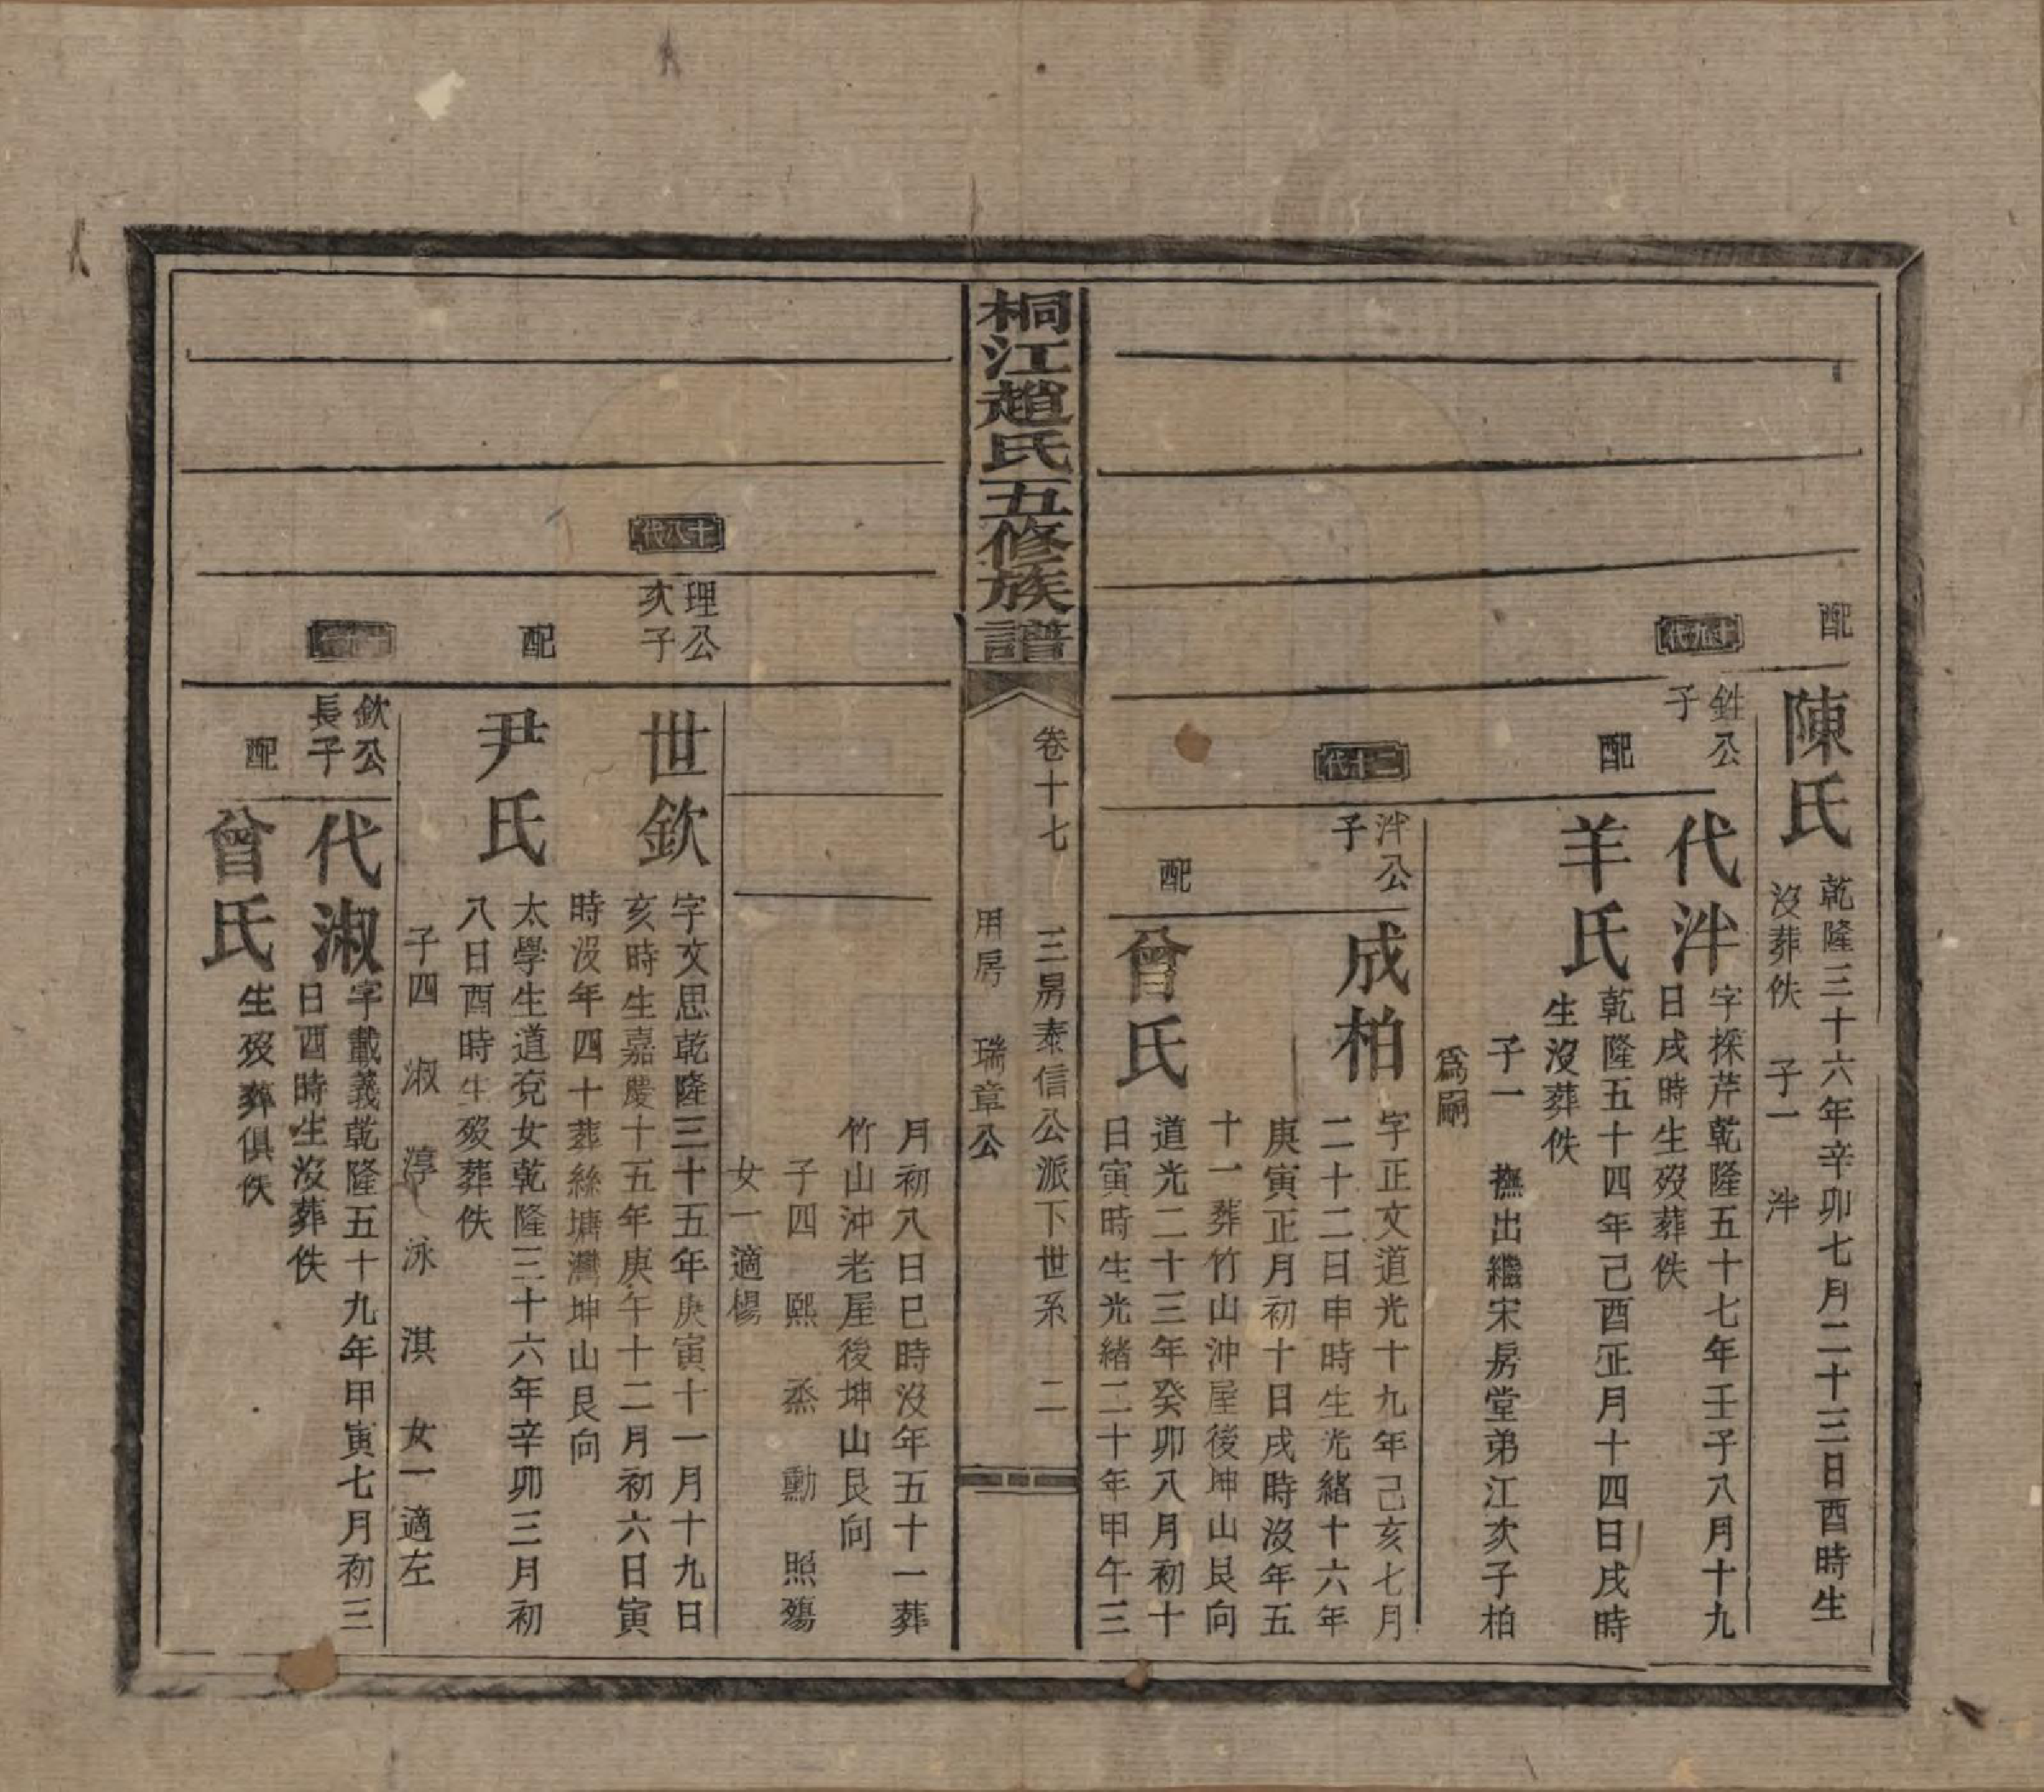 配
陳氏
乾隆三十六年辛卯七月二十三日酉時生
沒葬佚　子一　泮
十九代
鉎公
子
代泮
字採芹乾隆五十七年壬子八月十九
日戌時生歿葬佚
配
羊氏
乾隆五十四年己酉正月十四日戌時
生沒葬佚
子一　撫出繼宋房堂弟江次子柏
爲嗣
二十代
泮公
子
成柏
字正文道光十九年己亥七月
二十二日申時生光緒十六年
庚寅正月初十日戌時沒年五
十一葬竹山沖屋後坤山艮向
配
曾氏
道光二十三年癸卯八月初十
日寅時生光緒二十年甲午三
桐江趙氏五修族譜
卷十七　三房泰信公派下世系　二
用房　瑞章公
月初八日巳時沒年五十一葬
竹山沖老屋後坤山艮向
子四　熙　烝　勳　照殤
女一適楊
十八代
理公
次子
世欽
字文思乾隆三十五年庚寅十一月十九日
亥時生嘉慶十五年庚午十二月初六日寅
時沒年四十葬絲塘灣坤山艮向
配
尹氏
太學生道兗女乾隆三十六年辛卯三月初
八日酉時生歿葬佚
子四　淑　淳　泳　淇　女一適左
欽公
長子
代淑
字戴義乾隆五十九年甲寅七月初三
日酉時生沒葬佚
配
曾氏
生歿葬俱佚